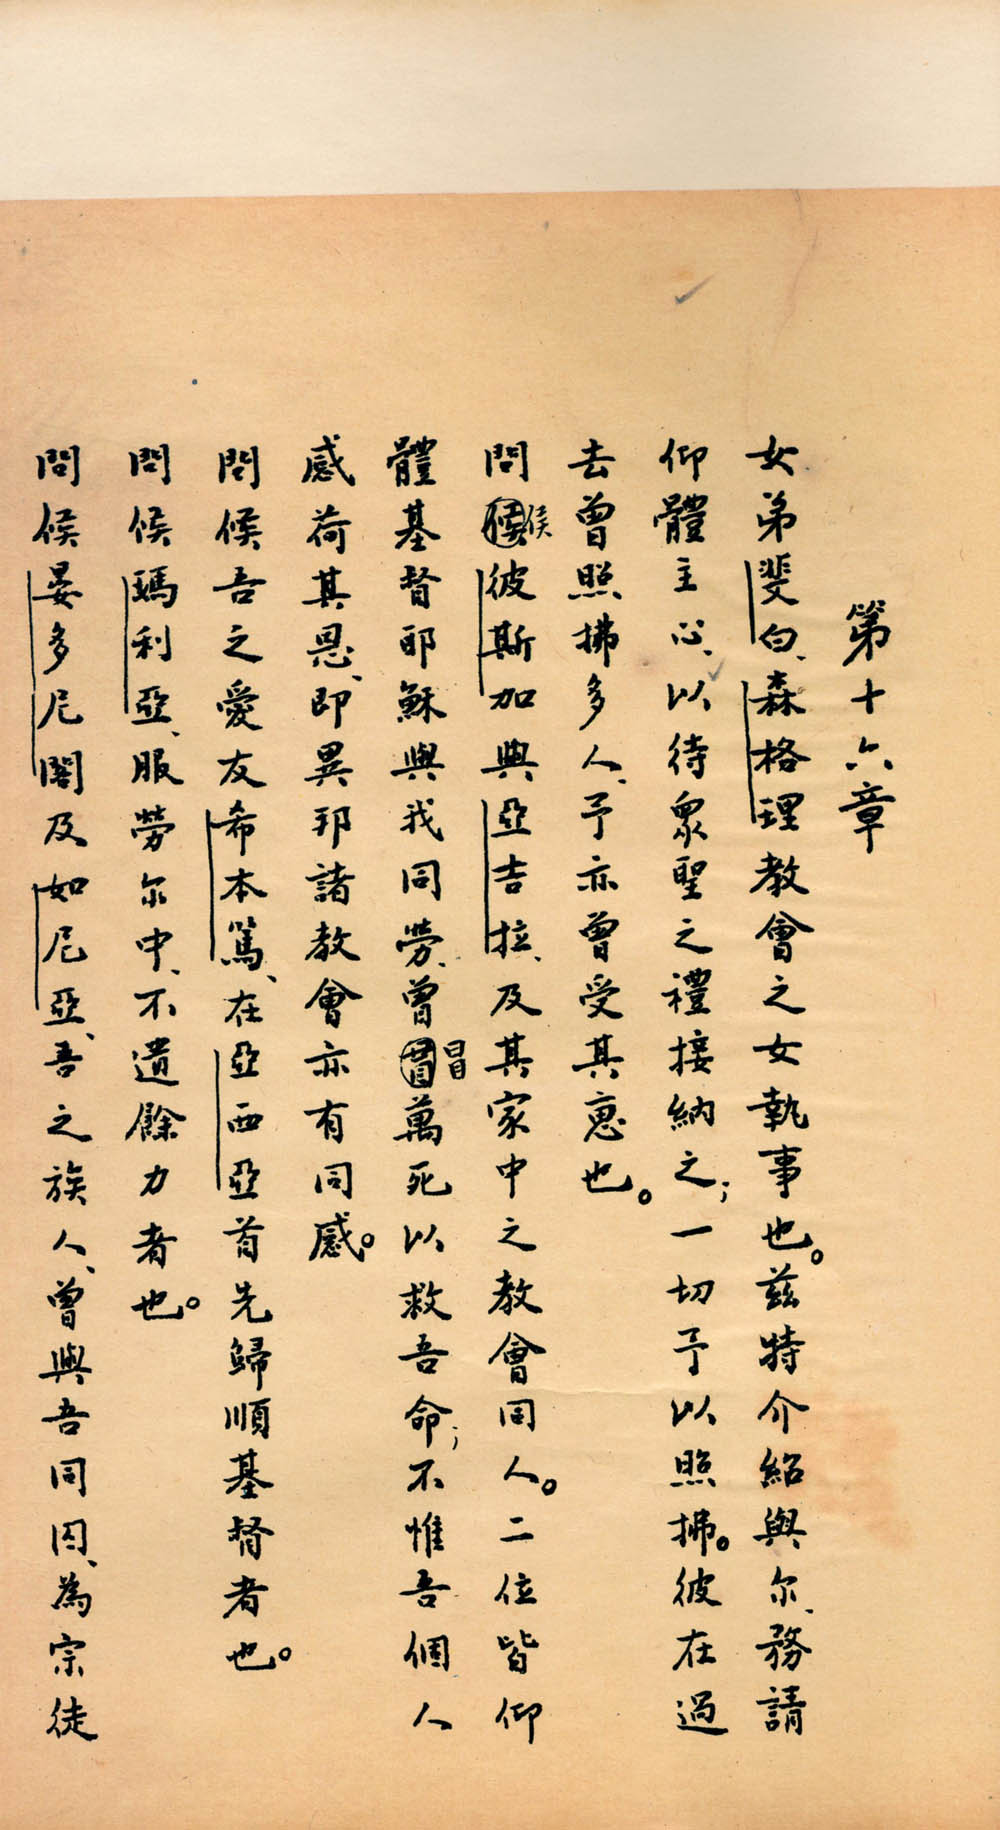 第十六章
女弟斐白、森格理教會之女執事也。茲特介紹與尔、務請
仰體主心、以待眾聖之禮接納之；一切予以照拂。彼在過
去曾照拂多人、予亦曾受其惠也。
問候彼斯加與亞吉拉、及其家中之教會同人。二位皆仰
體基督耶穌與我同勞、曾冒萬死以救吾命；不惟吾個人
感荷其恩、即異邦諸教會亦有同感。
問候吾之愛友希本篤、在亞西亞首先歸順基督者也。
問候瑪利亞、服勞尔中、不遺餘力者也。
問候晏多尼閣及如尼亞、吾之族人、曾與吾同囚、為宗徒